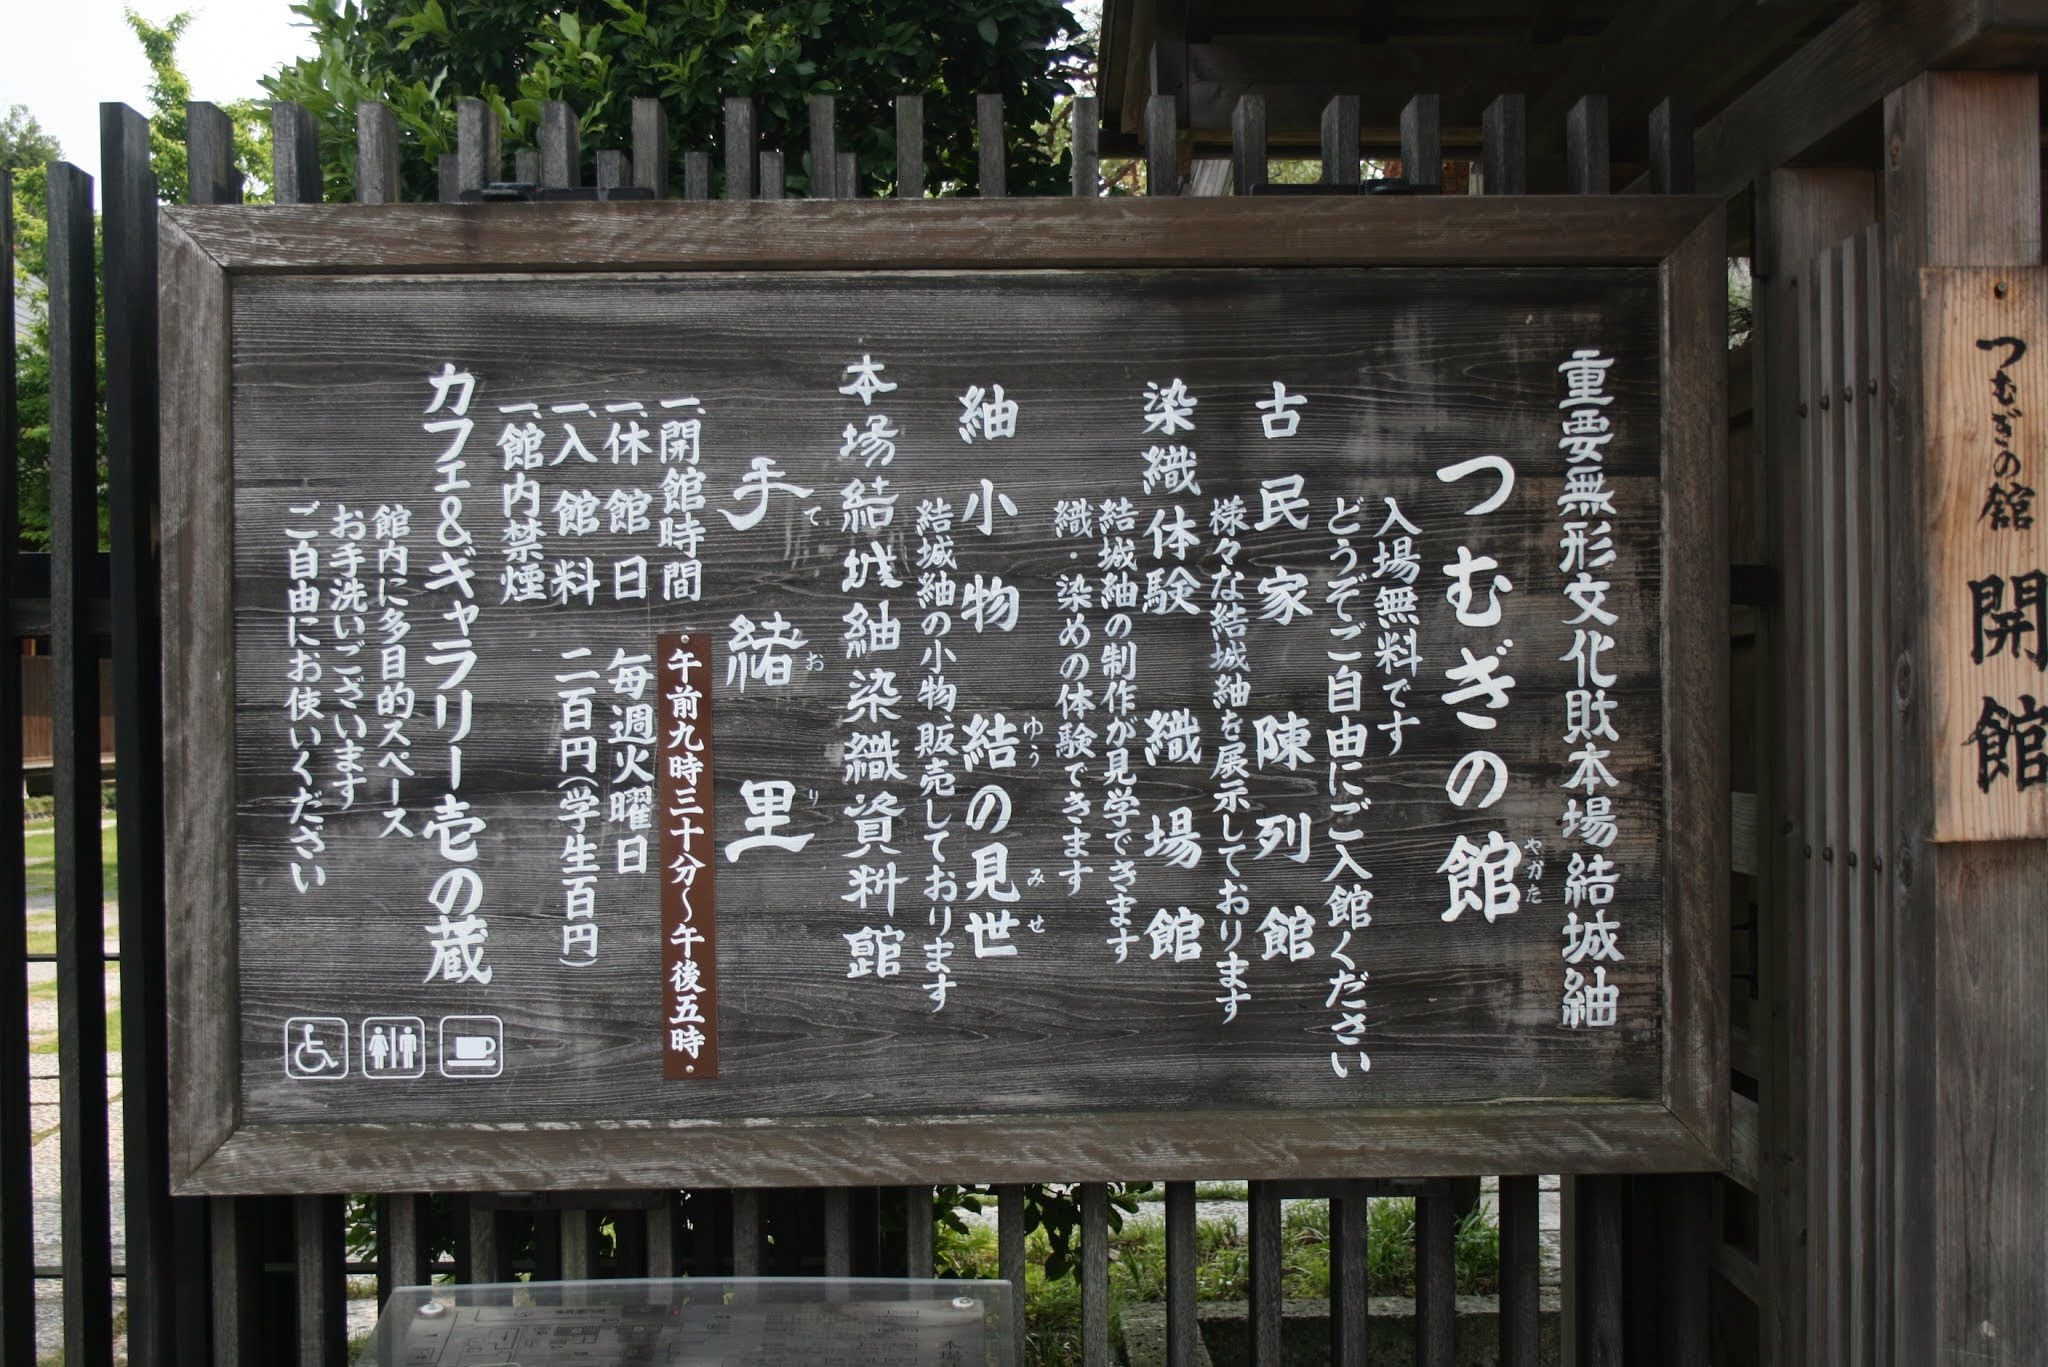 つむぎの館
開館
重要無形文化財本場結城紬
つむぎの館
やかた
入場無料です
どうぞご自由にご入館ください
古民家陳列館
様々な結城紬を展示しております
染織体験織場館
結城紬の制作が見学できます
織・染めの体験できます
紬小物 結の見世
ゆう みせ
結城紬の小物、販売しております
本場結城紬染織資料館
手緒里
ており
一、開館時間 午前九時三十分～午後五時
一、休館日 毎週火曜日
一、入館料 二百円(学生百円)
一、館内禁煙
カフェ&ギャラリー壱の蔵
館内に多目的スペース
お手洗いございます
ご自由にお使いください